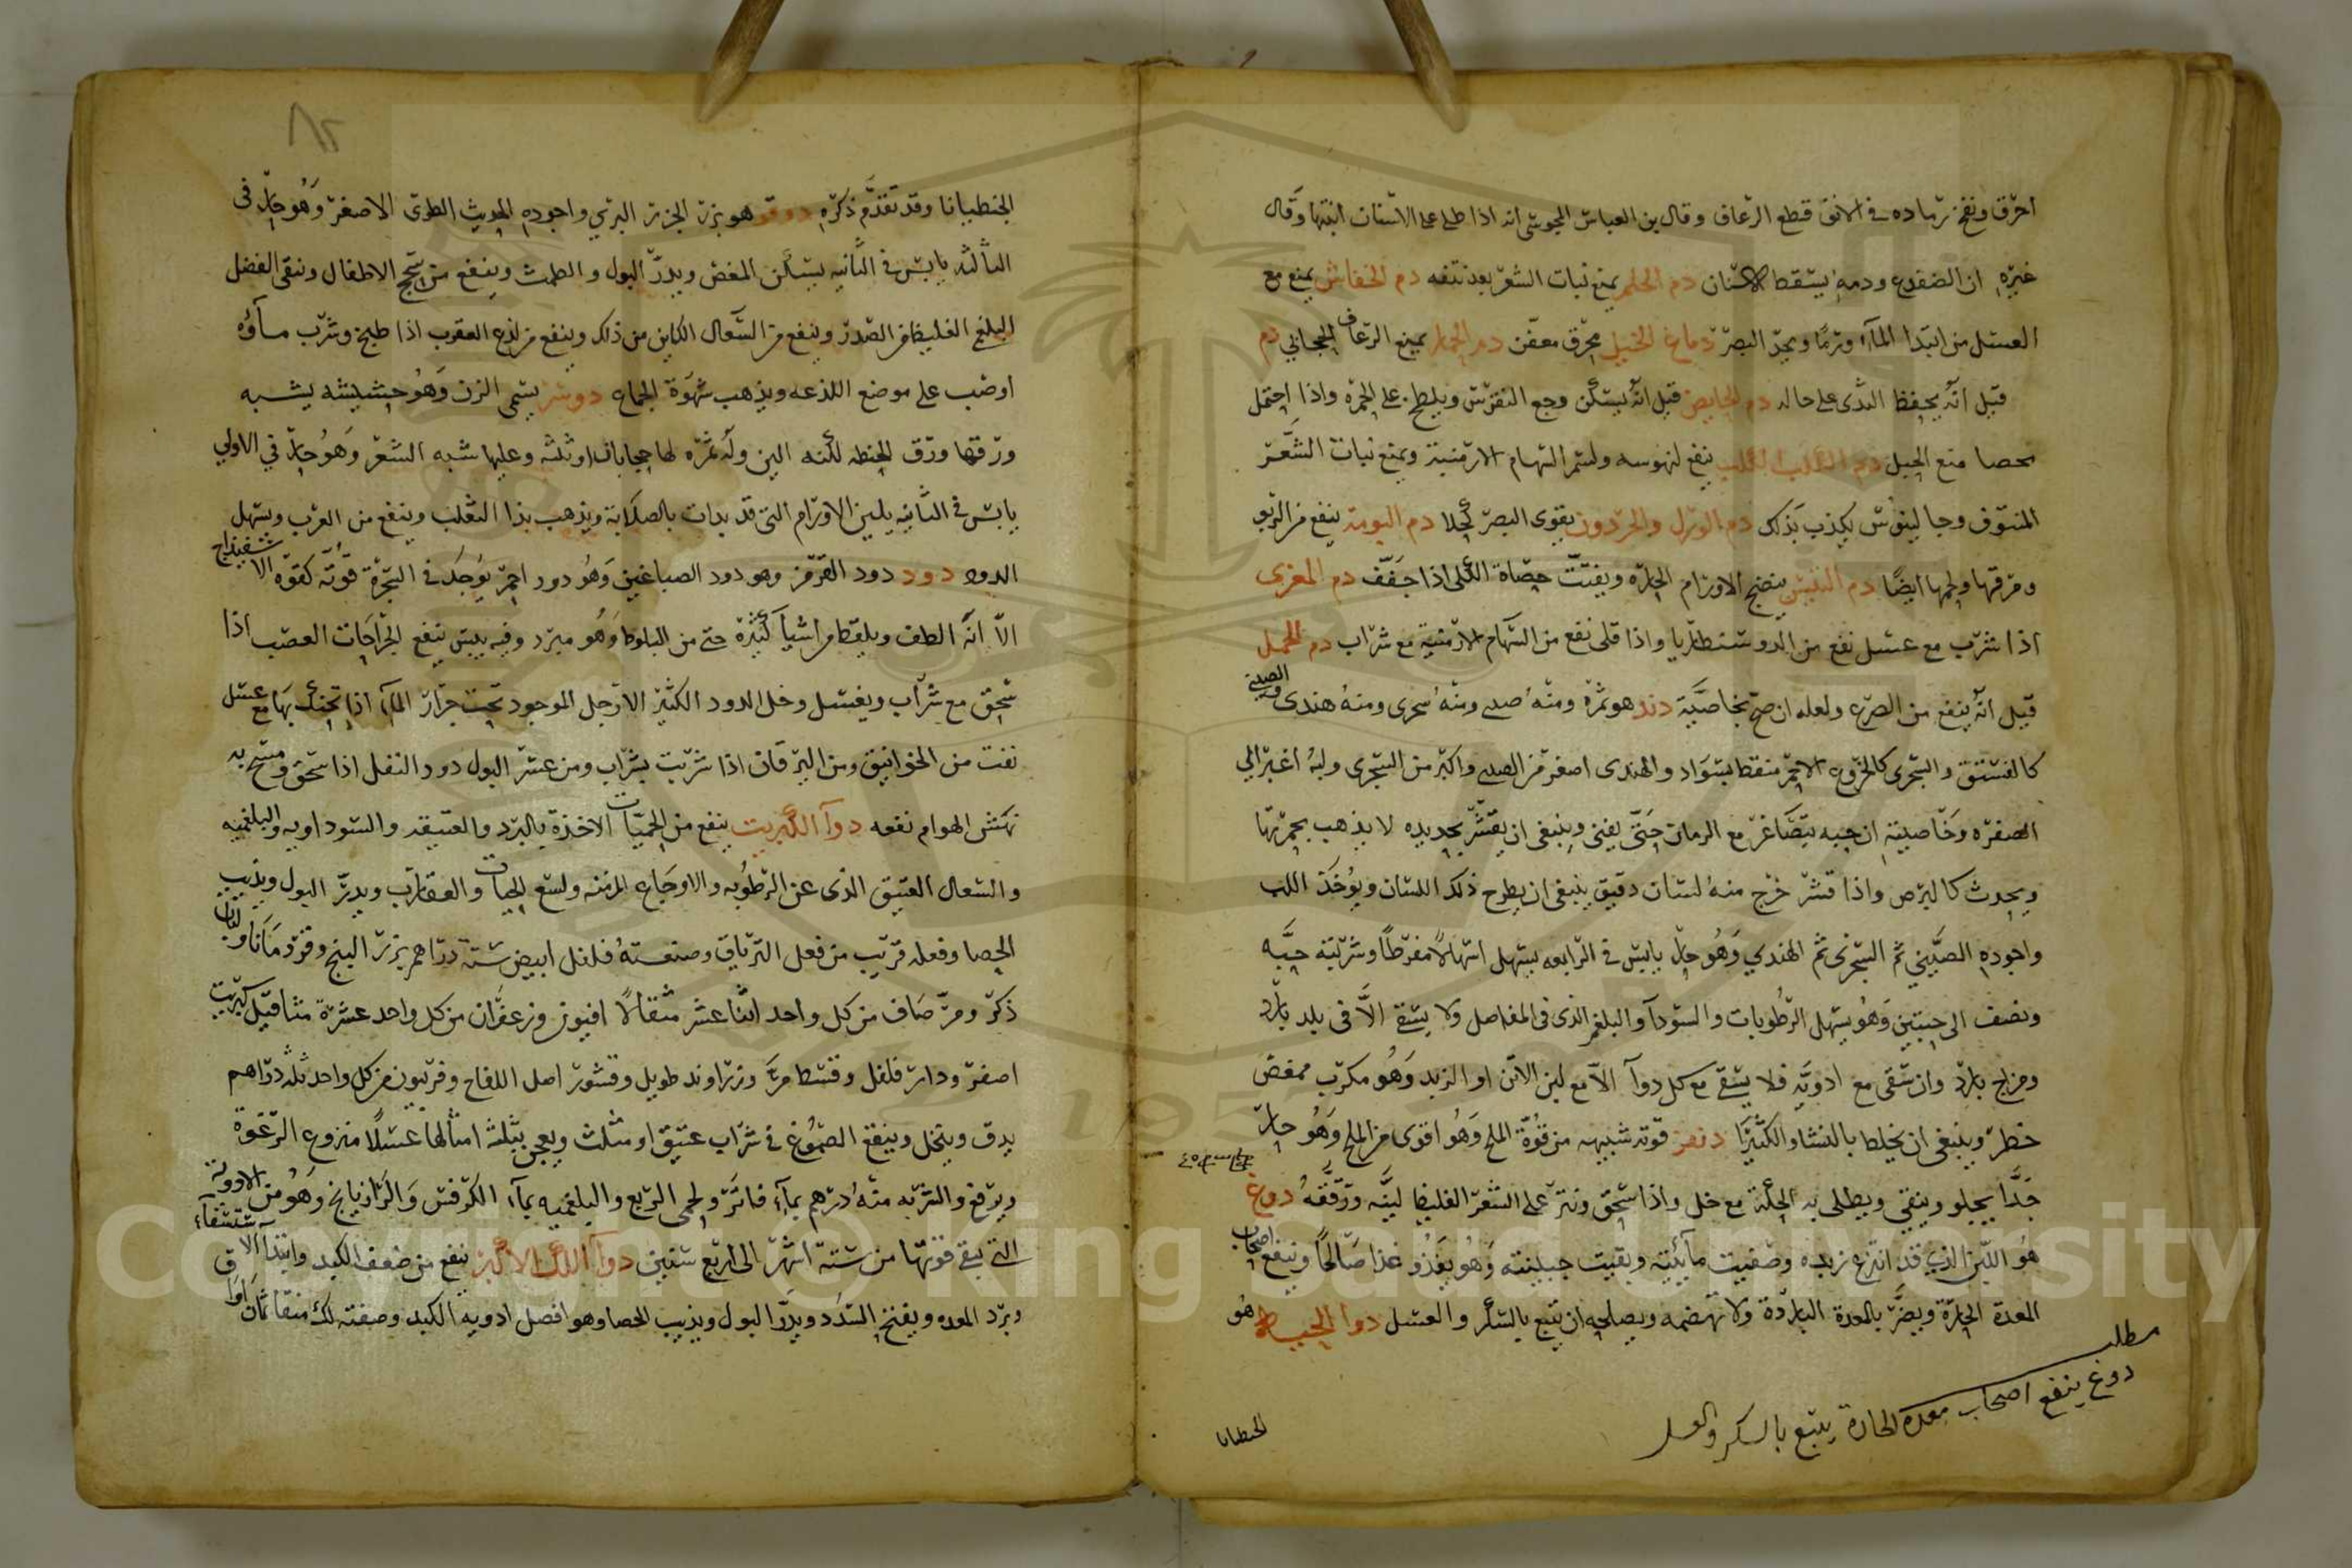 احرق ونفخ رماده في الانف قطع الرعاف وقال بن العباس المجوسي انه اذا طلي على الاسنان انبتها وقال
غيره ان الضفدع ودمه يسقط الاسنان دم الحلم يمنع نبات الشعر بعد نتفه دم الخفاش يمنع مع
العسل من ابتدا الماء ورمّا ويحد البصر دماغ الخيل محرق معفن دم الحمار يمنع الرعاف الحجابي دم
قيل انه يحفظ الثدى على حاله دم الحايض قيل انه يسكن وجع النقرس ويلطخ على الجمرة واذا احتمل
بحصا منع الحبل دم الكلب الكلب ينفع لنهوسه ولسم السهام الارمنية ويمنع نبات الشعر
المنتوف وجالينوس يكذب بذلك دم الورل والحردون يقوى البصر كحلا دم البومة ينفع من الربو
ومرقتها ولحمها ايضا دم التيس ينضج الاورام الحارة ويفتت حصاة الكلى اذا جفف دم المعزى
اذا شرب مع عسل نفع من الدوسنطاريا واذا قلى نفع من السهام الارمنية مع شراب دم الجمل
قيل انه ينفع من الصرع ولعله ان صح بخاصية دند هو ثمرة ومنه صيني ومنه سجزى ومنه هندى والصيني
كالفستق والسجزى كالخروع الاحمر منقط بسواد والهندى اصغر من الصيني واكبر من السجزى ولبه اغبر الي
الصفرة وخاصيته ان حبه يتصاغر مع الزمان حتى يفنى وينبغى ان يقشر بحديده لا يذهب بحمرتها
ويحدث كالبرص واذا قشر خرج منه لسان دقيق ينبغى ان يطرح ذلك اللسان ويؤخذ اللب
واجوده الصيني ثم السجزى ثم الهندي وهو حار يابس في الرابعه يسهل اسهالا مفرطا وشربته حبه
ونصف الى حبتين وهو يسهل الرطوبات والسودآ والبلغم الذى في المفاصل ولا يسقى الا في بلد بارد
ومزاج بارد وان سقى مع ادوية فلا يسقى مع كل دوآ الا مع لبن الاتن او الزبد وهو مكرب ممغص
خطر وينبغي ان يخلط بالنشا والكثيرا دنمر قوته شبيهه من قوة الملح وهو اقوى من الملح وهو حار
جدا يجلو وينقي ويطلى به الحكة مع خل واذا سحق ونثر على الشعر الغليظ لينه ورققه دوغ
هو اللبن الذي قد انتزع زبده وصفيت مآئيته وبقيت جبنيته وهو يغذو غذا صالحا وينفع اصحاب
المعدة الحارة ويضر بالمعدة الباردة ولا تهضمه ويصلحه ان يتبع بالسكر والعسل دوآ الحبطا هو
مطلب
دوغ ينفع اصحاب معدة الحارة يتبع بالسكر والعسل
الخنطيانا
٨٢
الجنطيانا وقد تقدم ذكره دوقو هو بزر الجزر البري واجوده الحديث الطرى الاصفر وهو حار في
الثالثه يابس في الثانيه يسكن المغص ويدر البول والطمث وينفع من سحج الاطفال وينقى الفضل
البلغمي الغليظ من الصدر وينفع من السعال الكاين من ذلك وينفع من لذع العقرب اذا طبخ وشرب مآؤه
اوصب على موضع اللذعه ويذهب شهوة الجماع دوسر يسمى الزن وهو حشيشه يشبه
ورقها ورق الحنطه لكنه الين وله ثمرة لها حجابان او ثلثه وعليها شبه الشعر وهو حار في الاولي
يابس في الثانيه يلين الاورام التي قد بدات بالصلابة ويذهب بدا الثعلب وينفع من الغرب ويسهل
الدود دود دود القرمز وهو دود الصباغين وهو دود احمر يوجد في الشجرة قوته كقوة الاسفيداج
الا انه الطف ويلقط من اشيآ كثيرة حتى من البلوط وهو مبرد وفيه يبس ينفع لجراحات العصب اذا
سحق مع شراب ويغسل وخل الدود الكثير الارجل الموجود تحت جرار المآء اذا تحنك بها مع عسل
نفت من الخوانيق ومن اليرقان اذا شربت بشراب ومن عسر البول دود النفل اذا سحق ومسح به
نهش الهوام نفعه دوآ الكبريت ينفع من الحميات الاخذة بالبرد والعتيقه والسوداويه والبلغميه
والسعال العتيق الذى عن الرطوبه والاوجاع المزمنه ولسع الحيات والعقارب ويدر البول ويذيب
الحصا وفعله قريب من فعل الترياق وصنعته فلفل ابيض ستة دراهم بزر البنج وقردمانا ولبان
ذكر ومر صاف من كل واحد اثنا عشر مثقالا افيون وزعفران من كل واحد عشرة مثاقيل كبريت
اصفر ودار فلفل وقسط مر وزراوند طويل وقشور اصل اللفاح وفربيون من كل واحد ثلثه دراهم
يدق وينخل وينقع الصموغ في شراب عتيق او مثلث ويعجن بثلثه امثالها عسلا منزوع الرغوة
ويرفع والشربه منه درهم بمآء فاتر ولحمى الربع والبلغميه بمآء الكرفس والرازيانج وهو من الادوية
التي تبقى قوتها من ستة اشهر الى اربع سنين دوآ اللك الاكبر ينفع من ضعف الكبد وابتدا الاستسقآء
وبرد المعده ويفتح السدد ويدر البول ويذيب الحصا وهو افضل ادويه الكبد وصفته لك منقا ثمان اواق